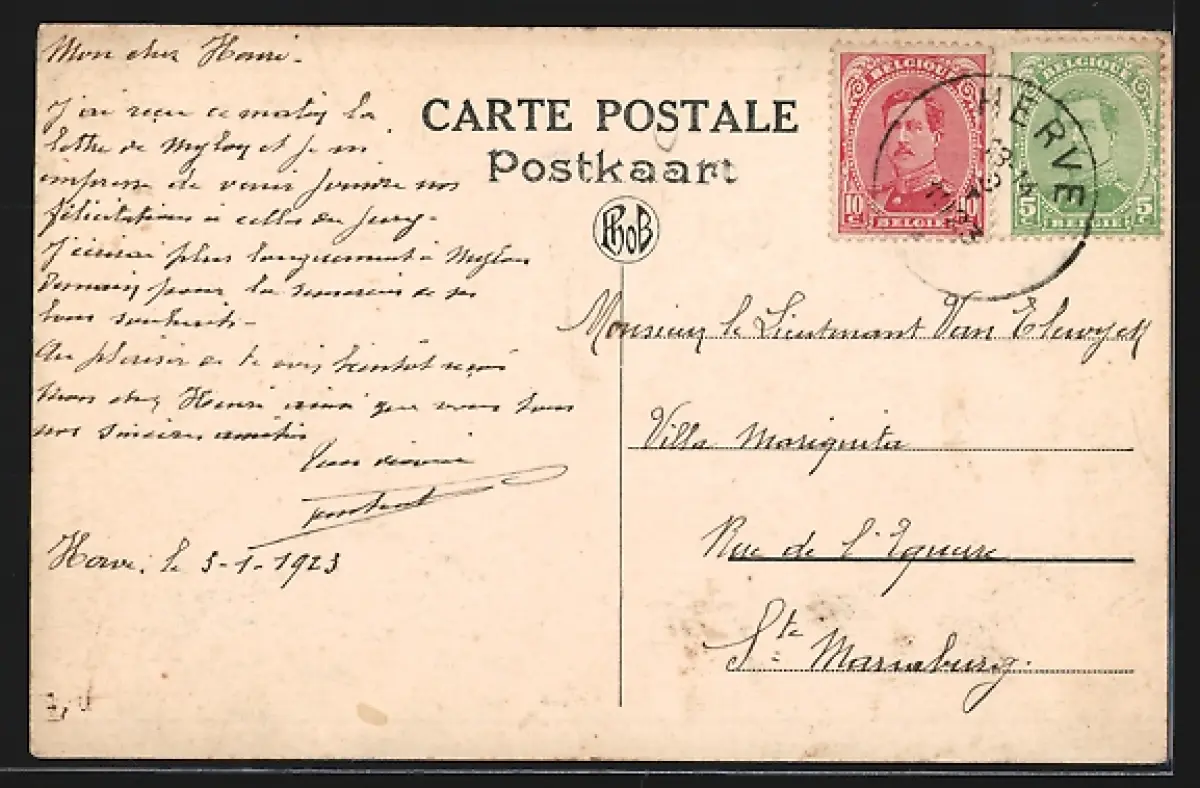 Mon cher Henri.
J'ai reçu ce matin la
lettre de et je m'
empresse de venir joindre nos
félicitations à celles du jury.
J'écrirai plus longuement à
Demain pour la remercier de ses
bons souhaits.
Au plaisir de te voir bientôt reçois
mon cher Henri ainsi que vous tous
nos sincères amitiés
Herve, le 3-1-1923
CARTE POSTALE
Postkaart
PhoB
BELGIQUE
10 c. 10 c.
BELGIE
BELGIQUE
5 c. 5 c.
BELGIE
HERVE
Monsieur le Lieutenant Van Elewyck
Villa Mariquita
Rue de l'Equerre
Ste Mariaburg.